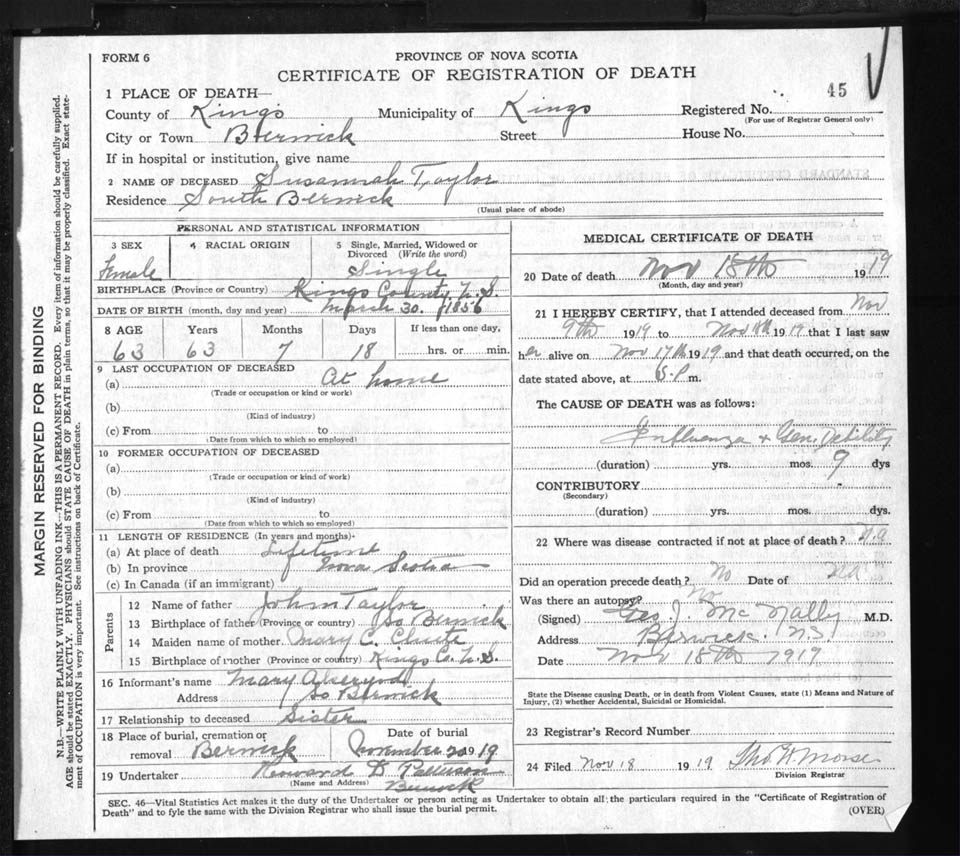 FORM 6
PROVINCE OF NOVA SCOTIA
CERTIFICATE OF REGISTRATION OF DEATH
45
1 PLACE OF DEATH—
County of Kings Municipality of Kings Registered No.
(For use of Registrar General only)
City or Town Berwick Street House No.
If in hospital or institution, give name
2 NAME OF DECEASED Susannah Taylor
Residence South Berwick
(Usual place of abode)
PERSONAL AND STATISTICAL INFORMATION
3 SEX 4 RACIAL ORIGIN 5 Single, Married, Widowed or
Divorced (Write the word)
Female Single
BIRTHPLACE (Province or Country) Kings County N.S.
DATE OF BIRTH (month, day and year) March 30. 1856
8 AGE Years Months Days If less than one day,
63 63 7 18 hrs. or min.
9 LAST OCCUPATION OF DECEASED
(a) At home
(Trade or occupation or kind or work)
(b)
(Kind of industry)
(c) From to
(Date from which to which so employed)
10 FORMER OCCUPATION OF DECEASED
(a)
(Trade or occupation or kind of work)
(b)
(Kind of industry)
(c) From to
(Date from which to which so employed)
11 LENGTH OF RESIDENCE (In years and months)-
(a) At place of death Lifetime
(b) In province Nova Scotia
(c) In Canada (if an immigrant)
Parents
12 Name of father John Taylor
13 Birthplace of father (Province or country) So Berwick
14 Maiden name of mother Mary C. Chute
15 Birthplace of mother (Province or country) Kings Co. N.S.
16 Informant's name Mary
Address So Berwick
17 Relationship to deceased Sister
18 Place of burial, cremation or Date of burial
removal Berwick November 20 1919
19 Undertaker Howard D
(Name and Address) Berwick
MEDICAL CERTIFICATE OF DEATH
20 Date of death Nov 18th 1919
(Month, day and year)
21 I HEREBY CERTIFY, that I attended deceased from Nov
9th 1919 to Nov 18th 1919 that I last saw
her alive on Nov 17th 1919 and that death occurred, on the
date stated above, at P m.
The CAUSE OF DEATH was as follows:
Influenza + Gen. Debility
(duration) yrs. mos. 9 dys
CONTRIBUTORY
(Secondary)
(duration) yrs. mos. dys.
22 Where was disease contracted if not at place of death?
Did an operation precede death? No Date of
Was there an autopsy? No
(Signed) Geo J. McNally M.D.
Address Berwick. N.S
Date Nov 18th 1919
State the Disease causing Death, or in death from Violent Causes, state (1) Means and Nature of
Injury, (2) whether Accidental, Suicidal or Homicidal.
23 Registrar's Record Number
24 Filed Nov 18 1919 Tho W Morse
Division Registrar
SEC. 46—Vital Statistics Act makes it the duty of the Undertaker or person acting as Undertaker to obtain all the particulars required in the "Certificate of Registration of
Death" and to fyle the same with the Division Registrar who shall issue the burial permit.
(OVER)
MARGIN RESERVED FOR BINDING
N.B.—WRITE PLAINLY WITH UNFADING INK—THIS IS A PERMANENT RECORD. Every item of information should be carefully supplied.
AGE should be stated EXACTLY. PHYSICIANS should STATE CAUSE OF DEATH in plain terms, so that it may be properly classified. Exact state-
ment of OCCUPATION is very important. See instructions on back of Certificate.